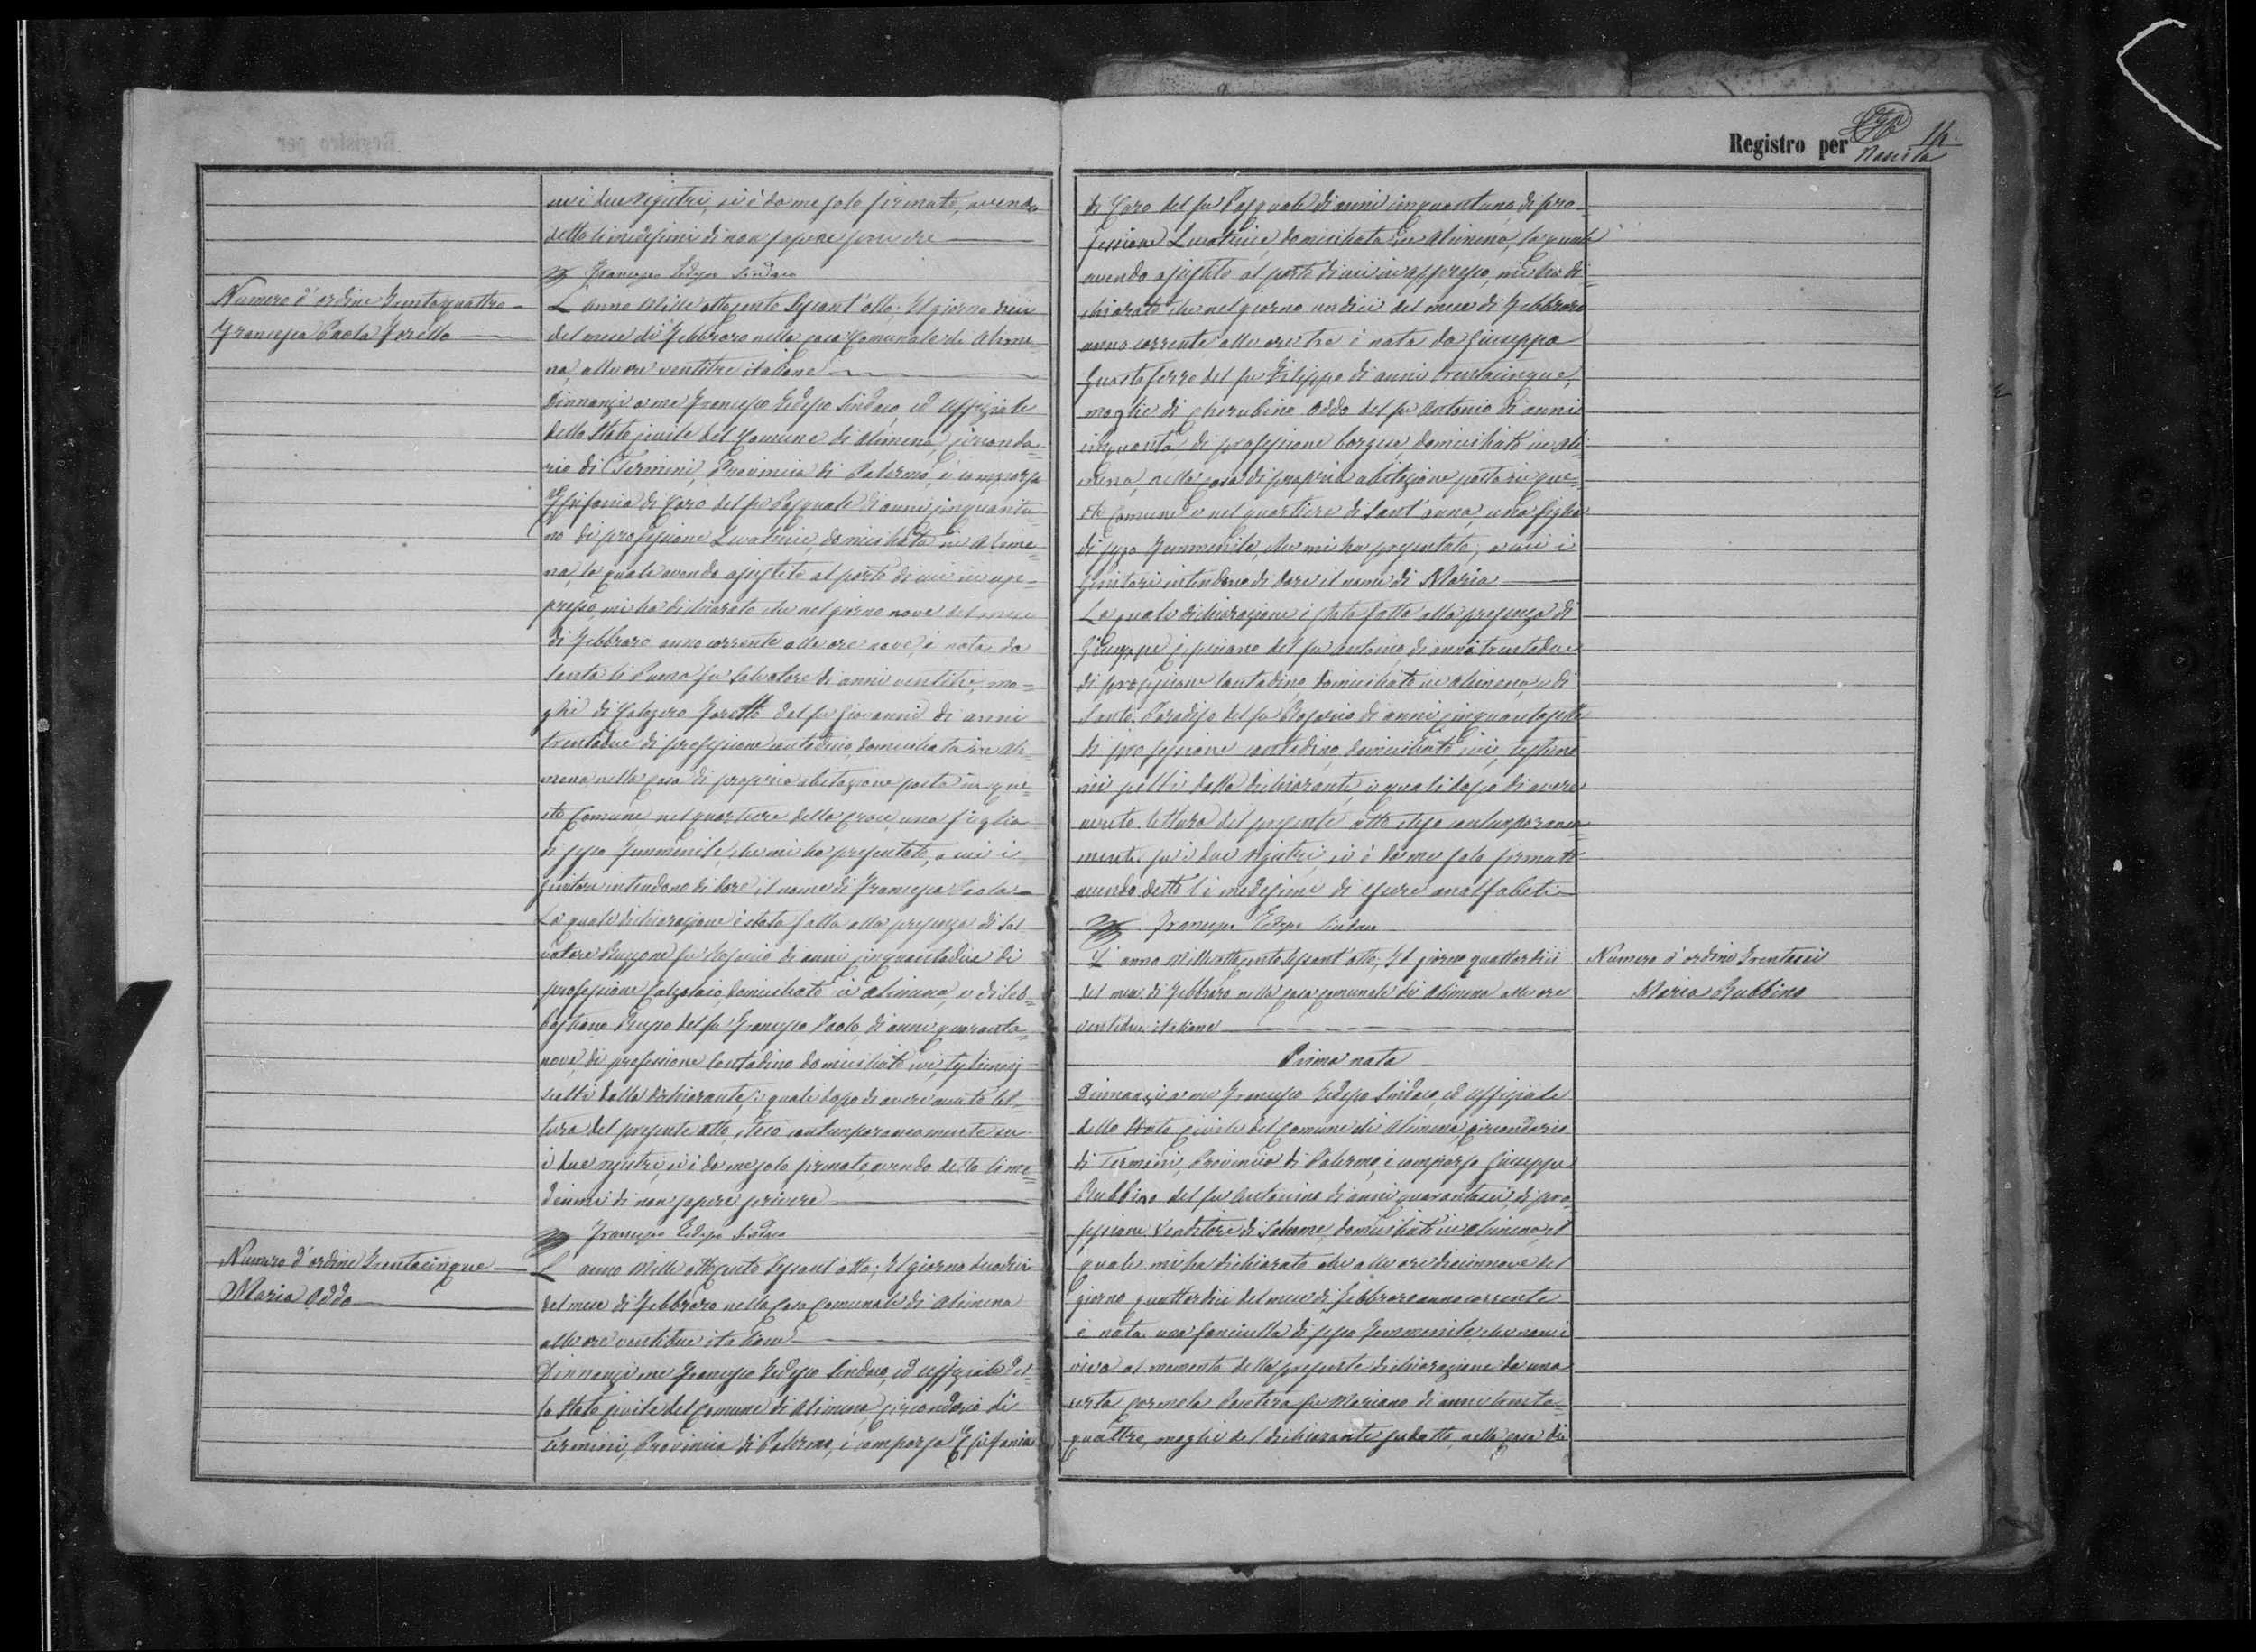 Registro per
Nascita
14.
sui due registri, si è da me solo firmato, avendo
detto li medesimi di non sapere scrivere
Francesco Sindaco
Numero d'ordine Trentaquattro
Francesca Paola
L'anno Mille ottocento sessant'otto; Il giorno dieci
del mese di Febbraro nella casa Comunale di Alime=
na, alle ore ventitre italiane
Dinnanzi a me Francesco Sindaco, ed Uffiziale
dello Stato Civile del Comune di Alimena, circonda=
rio di Termini, Provincia di Palermo, è comparsa
Epifania di Caro del fu Pasquale di anni cinquantu=
no di professione Levatrice, domiciliata in Alime=
na, la quale avendo assistito al parto di cui in ap=
presso, mi ha dichiarato che nel giorno nove del mese
di Febbraro anno corrente alle ore nove, è nata da
Santa li Puma fu Salvatore di anni ventitre, mo=
glie di Calogero del fu Giovanni di anni
trentadue di professione contadino, domiciliata in Ali=
mena, nella casa di propria abitazione posta in que=
sto Comune, nel quartiere della Croce, una figlia
di sesso femminile, che mi ha presentato, a cui i
genitori intendono di dare il nome di Francesca Paola
La quale dichiarazione è stata fatta alla presenza di Sal
vatore fu Rosario di anni cinquantadue di
professione Calzolaio, domiciliato in Alimena, e di Seb=
bastiano Russo del fu Francesco Paolo, di anni quaranta
nove, di professione contadino domiciliato ivi, testimonj
scelti dalla dichiarante, i quali dopo di avere avuto let=
tura del presente atto, steso contemporaneamente su
i due registri, si è da me solo firmato, avendo detto li me=
desimi di non sapere scrivere
Francesco Sindaco
Numero d'ordine Trentacinque
Maria Oddo
L'anno Mille ottocento Sessant'otto; Il giorno duodici
del mese di Febbraro nella Casa Comunale di Alimena
alle ore ventidue italiane
Dinnanzi me Francesco Sindaco, ed Uffiziale del=
lo Stato Civile del Comune di Alimena, circondario di
Termini, Provincia di Palermo, è comparsa Epifania
di Caro del fu Pasquale di anni cinquantuno, di pro=
fessione Levatrice domiciliata in Alimena, la quale
avendo assistito al parto di cui in appresso, mi ha di=
chiarato che nel giorno undici del mese di Febbraro
anno corrente alle ore tre è nata da Giuseppa
Guastaferro del fu Filippo di anni trentacinque,
moglie di Cherubino Oddo del fu Antonio di anni
cinquanta di professione borgese, domiciliato in Ali=
mena, nella casa di propria abitazione posta in que=
sto Comune e nel quartiere di Sant'anna, una figlia
di sesso femminile, che mi ha presentato, a cui i
genitori intendono di dare il nome di Maria
La quale dichiarazione è stata fatta alla presenza di
Giuseppe del fu Antonio, di anni trentadue
di professione contadino, domiciliato in Alimena, e di
Santo Paradiso del fu Rosario di anni cinquantasette
di professione contadino, domiciliato ivi, testimo
nii scelti dalla dichiarante, i quali dopo di avere
avuto lettura del presente atto steso contemporanea=
mente su i due registri, si è da me solo firmato
avendo detto li medesimi di essere analfabeti
Francesco Sindaco
Numero d'ordine Trentasei
Maria Rubbino
L'anno Milleottocento sessant'otto; Il giorno quattordici
del mese di Febbraro nella casa comunale di Alimena alle ore
ventidue italiane
Prima nata
Dinnanzi a me Francesco Sindaco, ed Uffiziale
dello Stato Civile del Comune di Alimena, circondario
di Termini, Provincia di Palermo, è comparso Giuseppe
Rubbino del fu Antonino di anni quarantasei, di pro=
fessione Venditore di Salume, domiciliato in Alimena, il
quale mi ha dichiarato che alle ore diciannove del
giorno quattordici del mese di Febbraro anno corrente
è nata una fanciulla di sesso femminile, che non è
viva al momento della presente dichiarazione da una
certa Carmela fu Mariano di anni trenta=
quattro, moglie del dichiarante sudetto, nella casa di